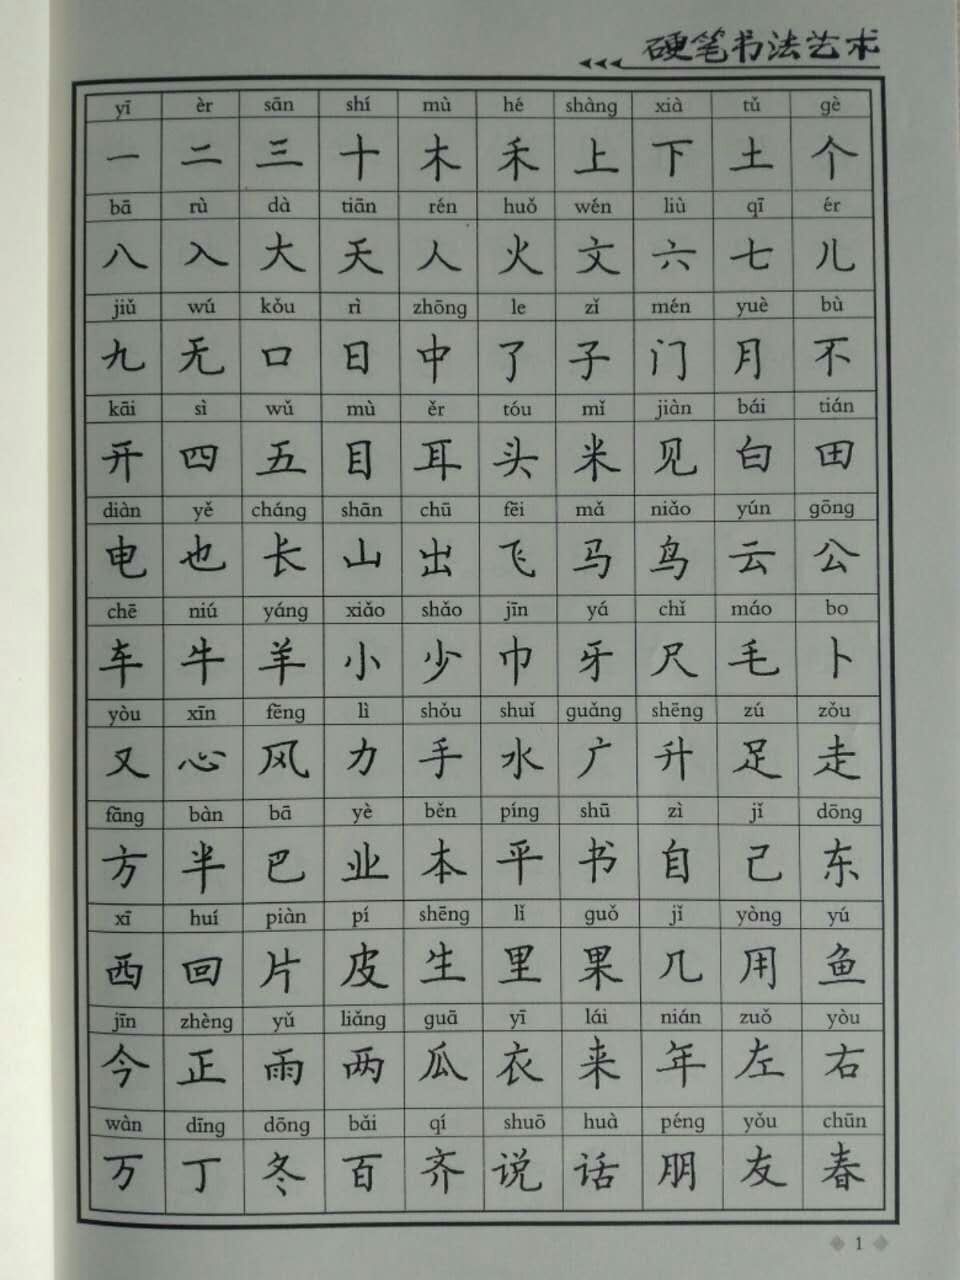 硬笔书法艺术
yī èr sān shí mù hé shàng xià tǔ gè
一 二 三 十 木 禾 上 下 土 个
bā rù dà tiān rén huǒ wén liù qī ér
八 入 大 天 人 火 文 六 七 儿
jiǔ wú kǒu rì zhōng le zǐ mén yuè bù
九 无 口 日 中 了 子 门 月 不
kāi sì wǔ mù ěr tóu mǐ jiàn bái tián
开 四 五 目 耳 头 米 见 白 田
diàn yě cháng shān chū fēi mǎ niǎo yún gōng
电 也 长 山 出 飞 马 鸟 云 公
chē niú yáng xiǎo shǎo jīn yá chǐ máo bo
车 牛 羊 小 少 巾 牙 尺 毛 卜
yòu xīn fēng lì shǒu shuǐ guǎng shēng zú zǒu
又 心 风 力 手 水 广 升 足 走
fāng bàn bā yè běn píng shū zì jǐ dōng
方 半 巴 业 本 平 书 自 己 东
xī huí piàn pí shēng lǐ guǒ jǐ yòng yú
西 回 片 皮 生 里 果 几 用 鱼
jīn zhèng yǔ liǎng guā yī lái nián zuǒ yòu
今 正 雨 两 瓜 衣 来 年 左 右
wàn dīng dōng bǎi qí shuō huà péng yǒu chūn
万 丁 冬 百 齐 说 话 朋 友 春
1